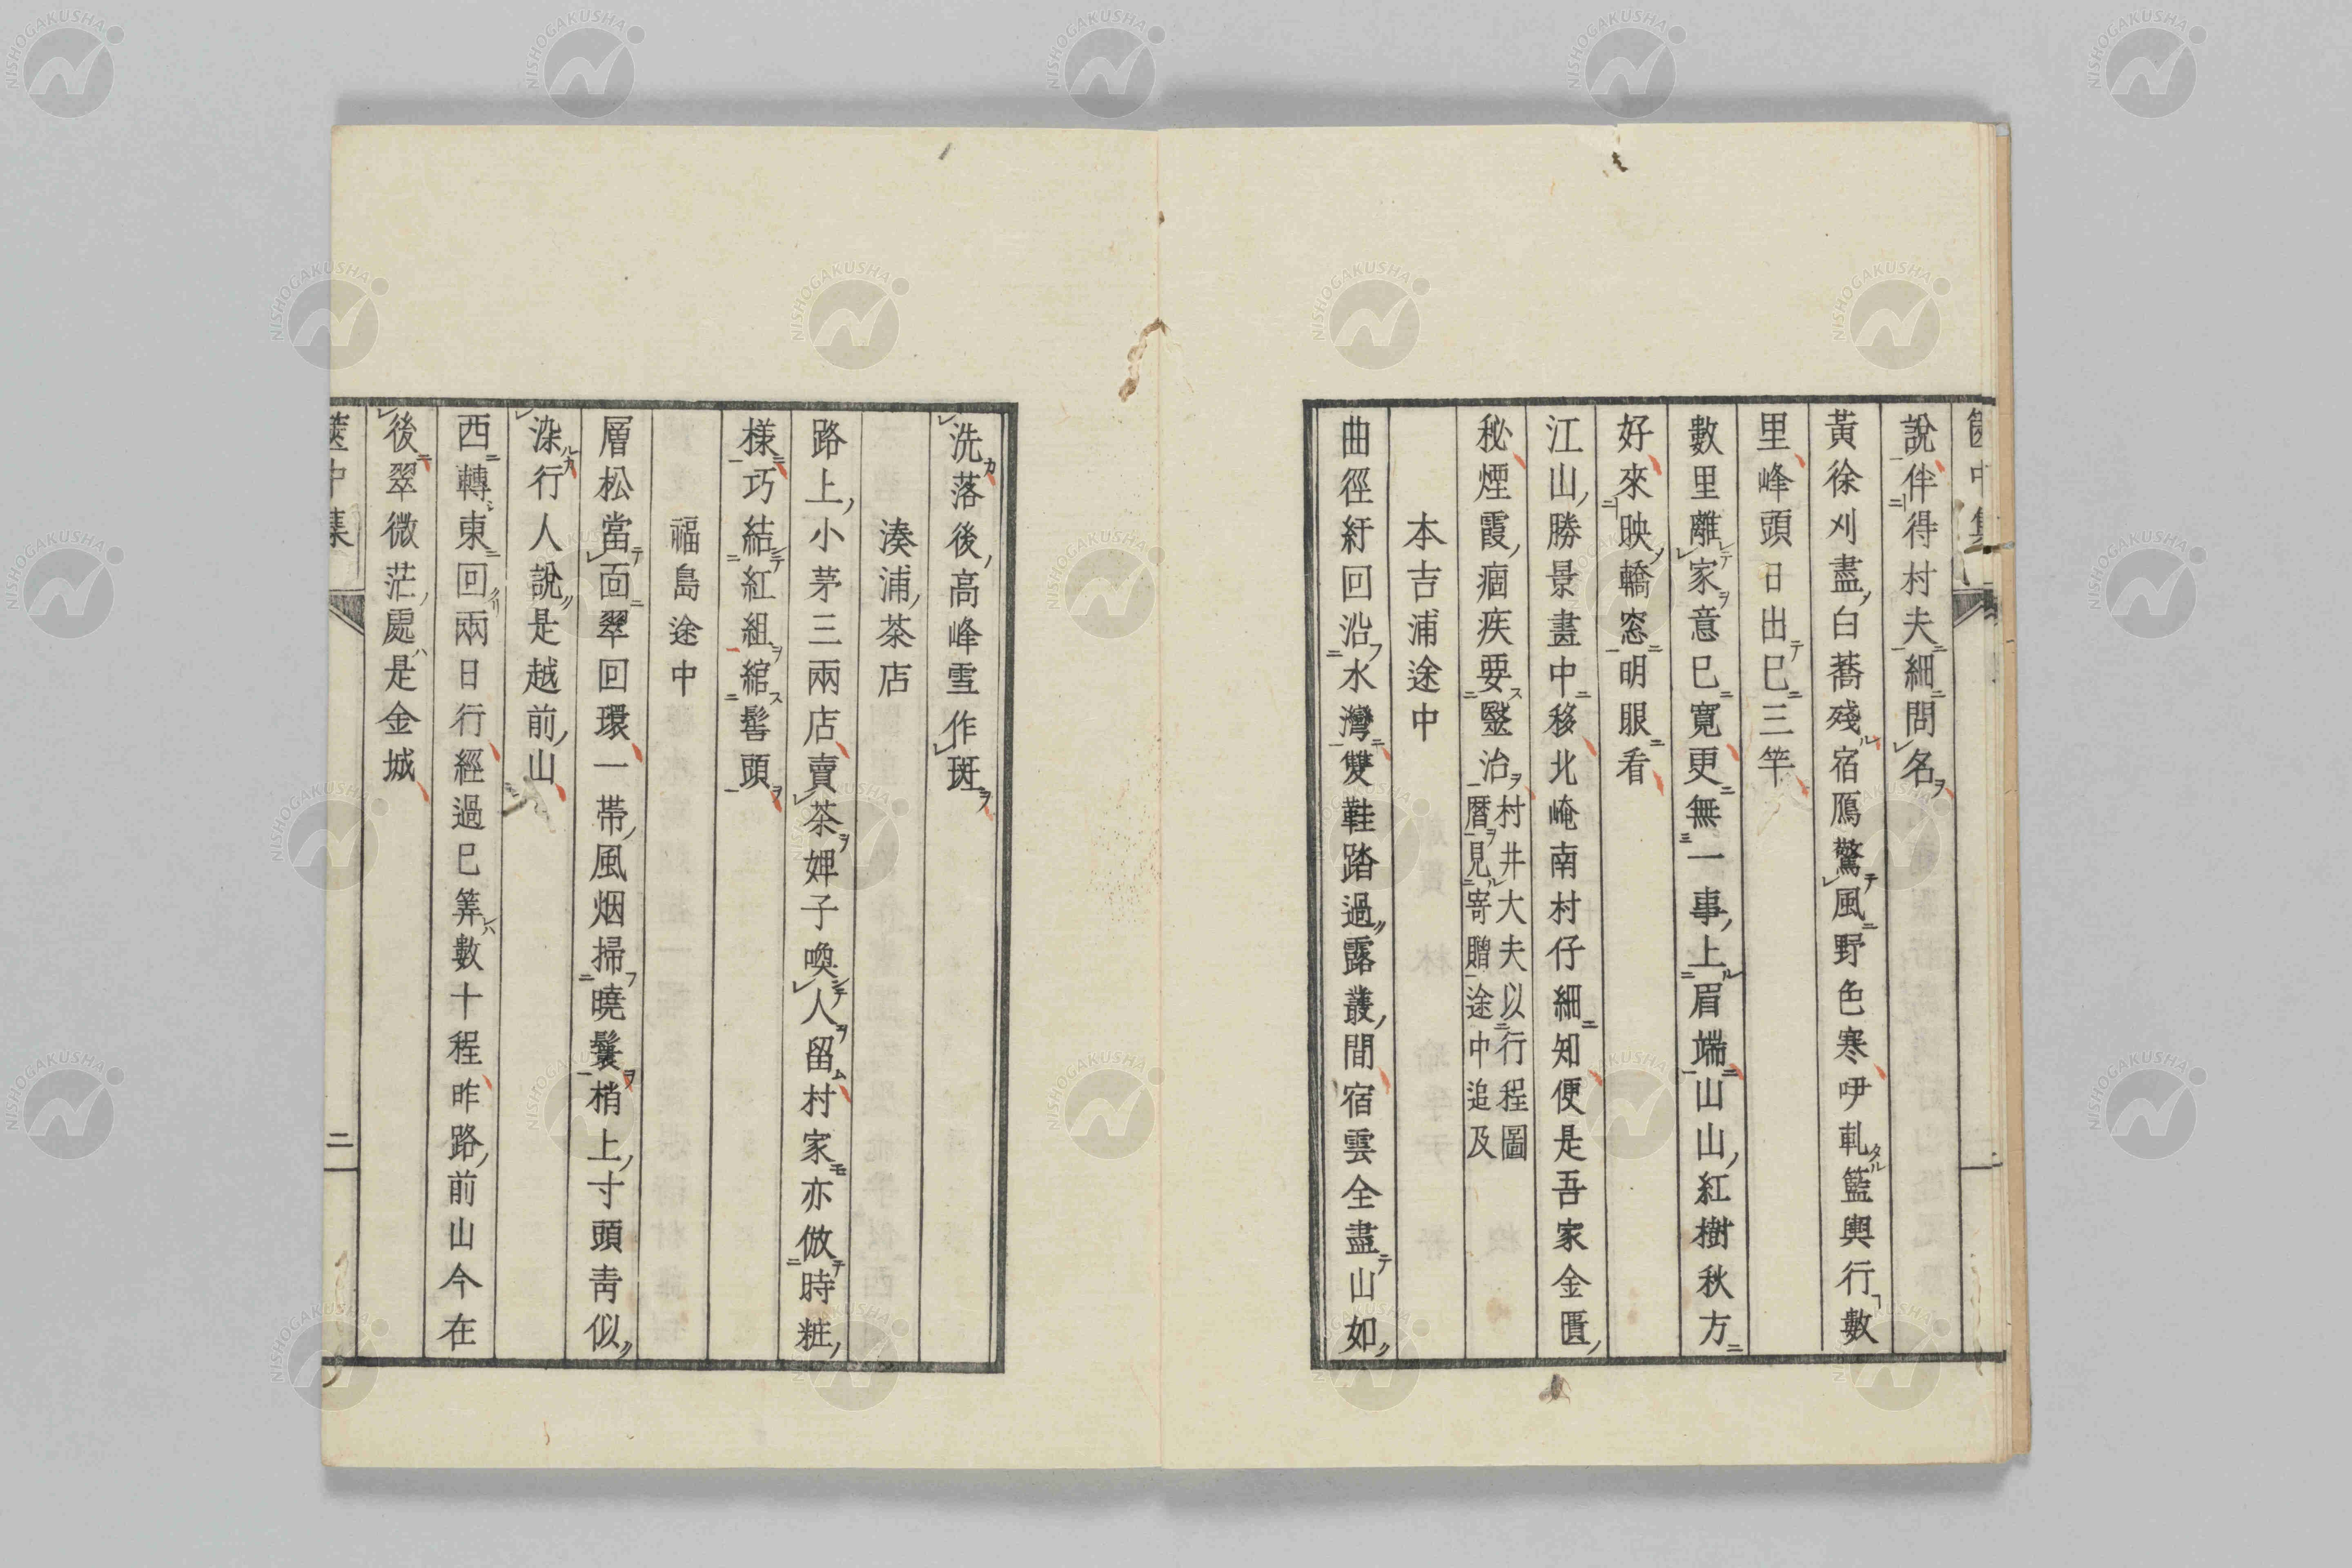 說伴得村夫細問名
黃徐刈盡白蕎殘宿鴈驚風野色寒咿軋籃輿行數
里峰頭日出已三竿
數里離家意已寬更無一事上眉端山山紅樹秋方
好來映轎窓明眼看
江山勝景畫中移北崦南村仔細知便是吾家金匱
秘煙霞痼疾要鑿治村井大夫以行程圖
曆見寄贈途中追及
本吉浦途中
曲徑紆回沿水灣雙鞋踏過露叢間宿雲全盡山如
洗落後高峰雪作斑
湊浦茶店
路上小茅三兩店賣茶婢子喚人留村家亦倣時粧
樣巧結紅組綰髻頭
福島途中
層松當面翠回環一帶風烟掃曉鬟梢上寸頭青似
染行人說是越前山
西轉東回兩日行經過已筭數十程昨路前山今在
後翠微茫處是金城
篋中集
二